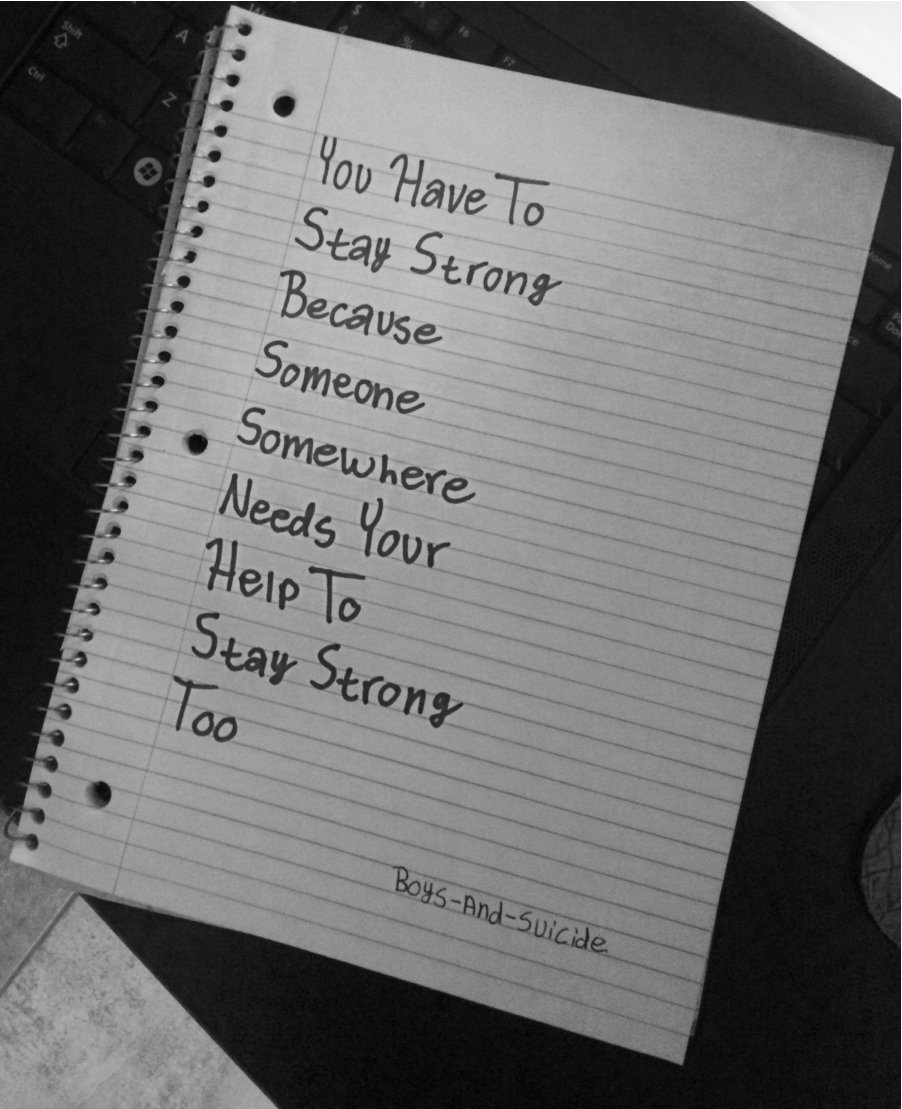 You Have To
Stay Strong
Because
Someone
Somewhere
Needs Your
Help To
Stay Strong
Too
Boys-And-Suicide
Shift
Ctrl
A
Z
F6
F7